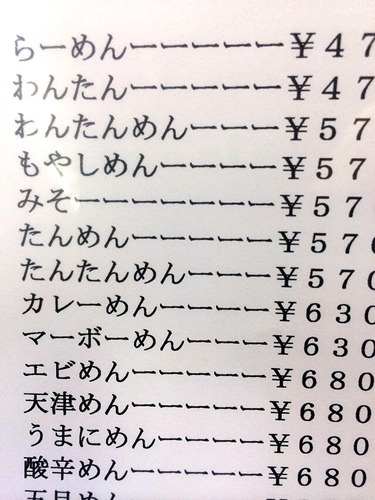 らーめんーーーーー¥47
わんたんーーーーー¥47
わんたんめんーーー¥57
もやしめんーーーー¥57
みそーーーーーーー¥57
たんめんーーーーー¥570
たんたんめんーーー¥570
カレーめんーーーー¥630
マーボーめんーーー¥630
エビめんーーーーー¥680
天津めんーーーーー¥680
うまにめんーーーー¥680
酸辛めんーーーーー¥680
五目めん